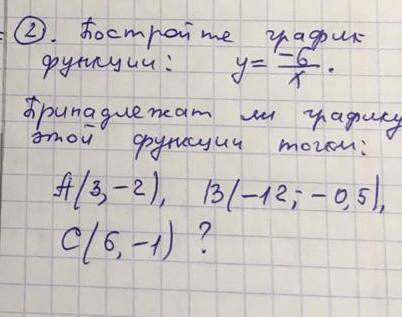 ②. Постройте график
функции: y = -6/x.
Принадлежат ли графику
этой функции точки:
A(3,-2), B(-12; -0,5),
C(6,-1) ?